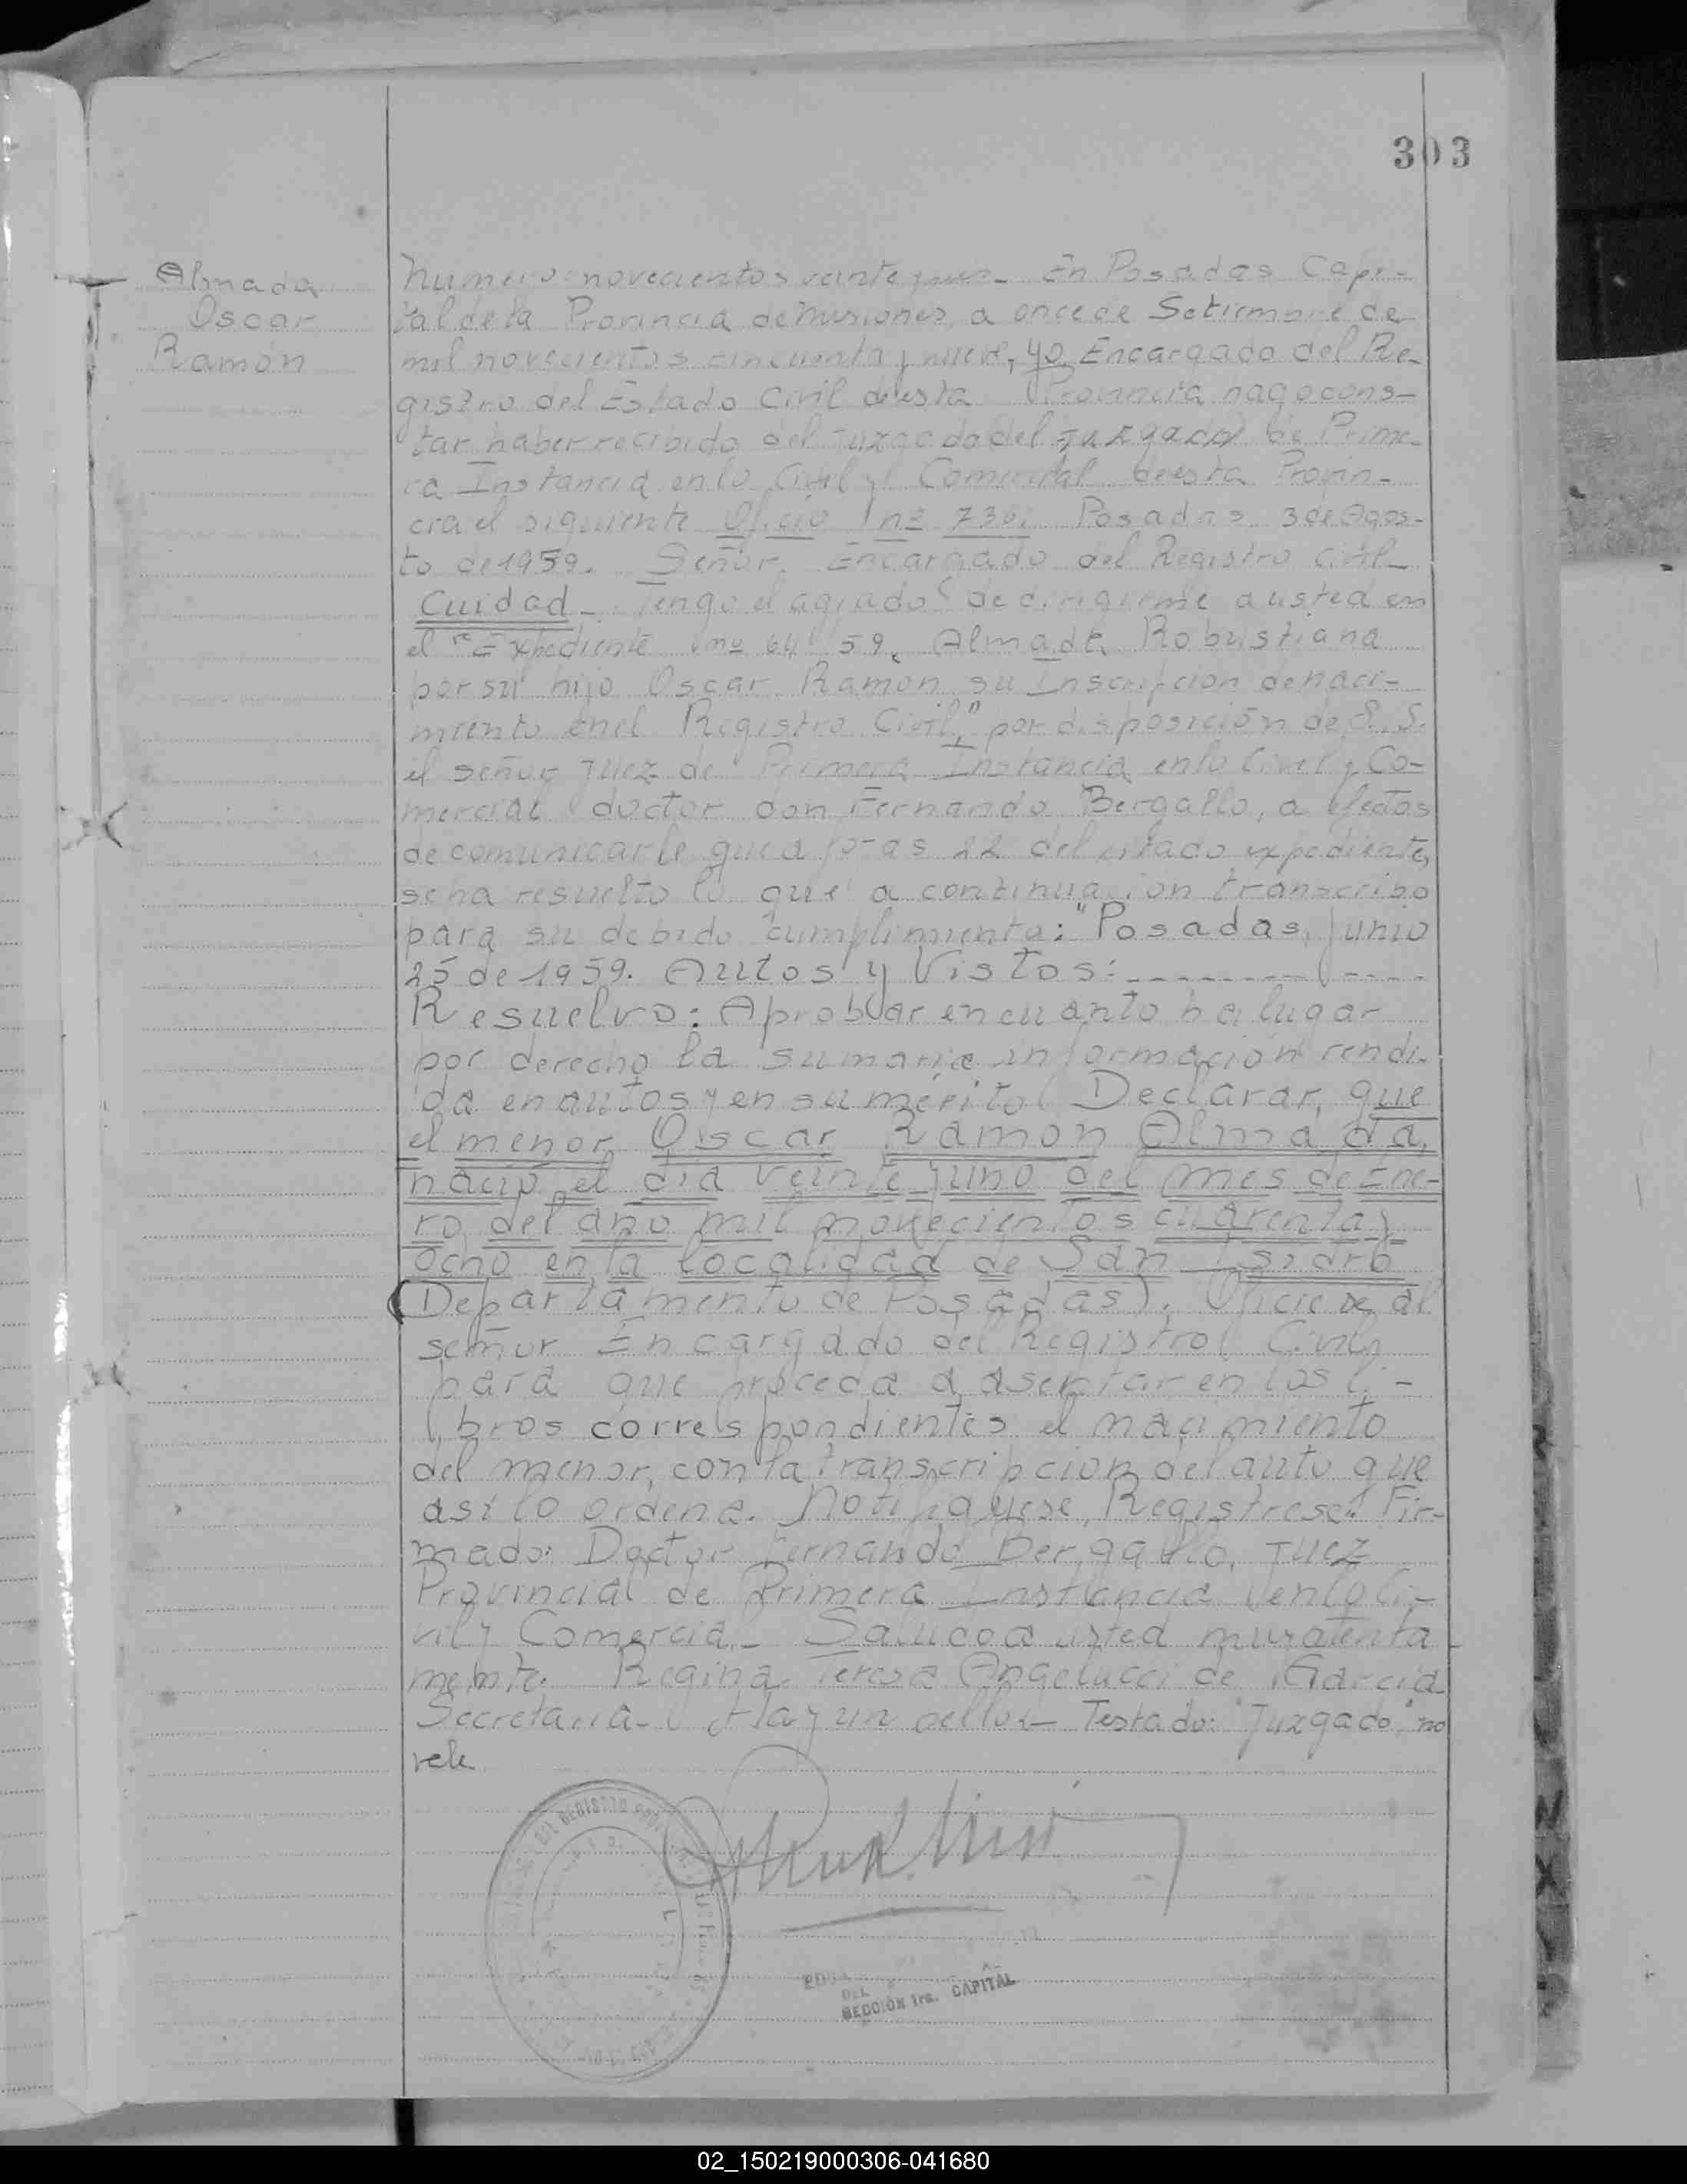 303
Almada
Oscar
Ramón
Numero novecientos veinte y En Posadas Capi-
tal de la Provincia de Misiones, a once de Setiembre de
mil novecientos cincuenta y nueve, yo Encargado del Re-
gistro del Estado Civil de esta Provincia hago cons-
tar haber recibido del Juzgado del Juzgado de Prime-
ra Instancia en lo Civil y Comercial de esta Provin-
cia el siguiente Oficio nº 730. Posadas 3 de Agos-
to de 1959. Señor Encargado del Registro Civil-
Cuidad - Tengo el agrado de dirigirme a usted en
el "Expediente nº 59, Almada Robustiana
por su hijo Oscar Ramon su Inscripcion de naci-
miento en el Registro Civil," por disposición de S.S.
el señor Juez de Primera Instancia en lo Civil y Co-
mercial doctor don Fernando Bergallo, a efectos
de comunicarle que a fojas 22 del citado expediente,
se ha resuelto lo que a continuacion transcribo
para su debido cumplimiento: "Posadas, Junio
25 de 1959. Autos y Vistos: - - - - - - - - - -
Resuelvo: Aprobar en cuanto ha lugar
por derecho la sumaria informacion rendi-
da en autos y en su mérito Declarar, que
el menor Oscar Ramon Almada,
nació el dia veinte y uno del mes de Ene-
ro del año mil novecientos cuarenta y
ocho en la localidad de San Isidro
(Departamento de Posadas). Oficiese al
señor Encargado del Registro Civil
para que proceda a asentar en los li-
bros correspondientes el nacimiento
del menor, con la transcripcion del auto que
así lo ordena. Notifiquese, Registrese." Fir-
mado: Doctor Fernando Bergallo, Juez
Provincial de Primera Instancia en lo Ci-
vil y Comercial - Saludo a usted muy atenta-
mente. Regina Teresa Angelucci de Garcia
Secretaria - Hay un sello - Testado: "Juzgado" no
vale
DEL
SECCIÓN 1ra. CAPITAL
02_150219000306-041680